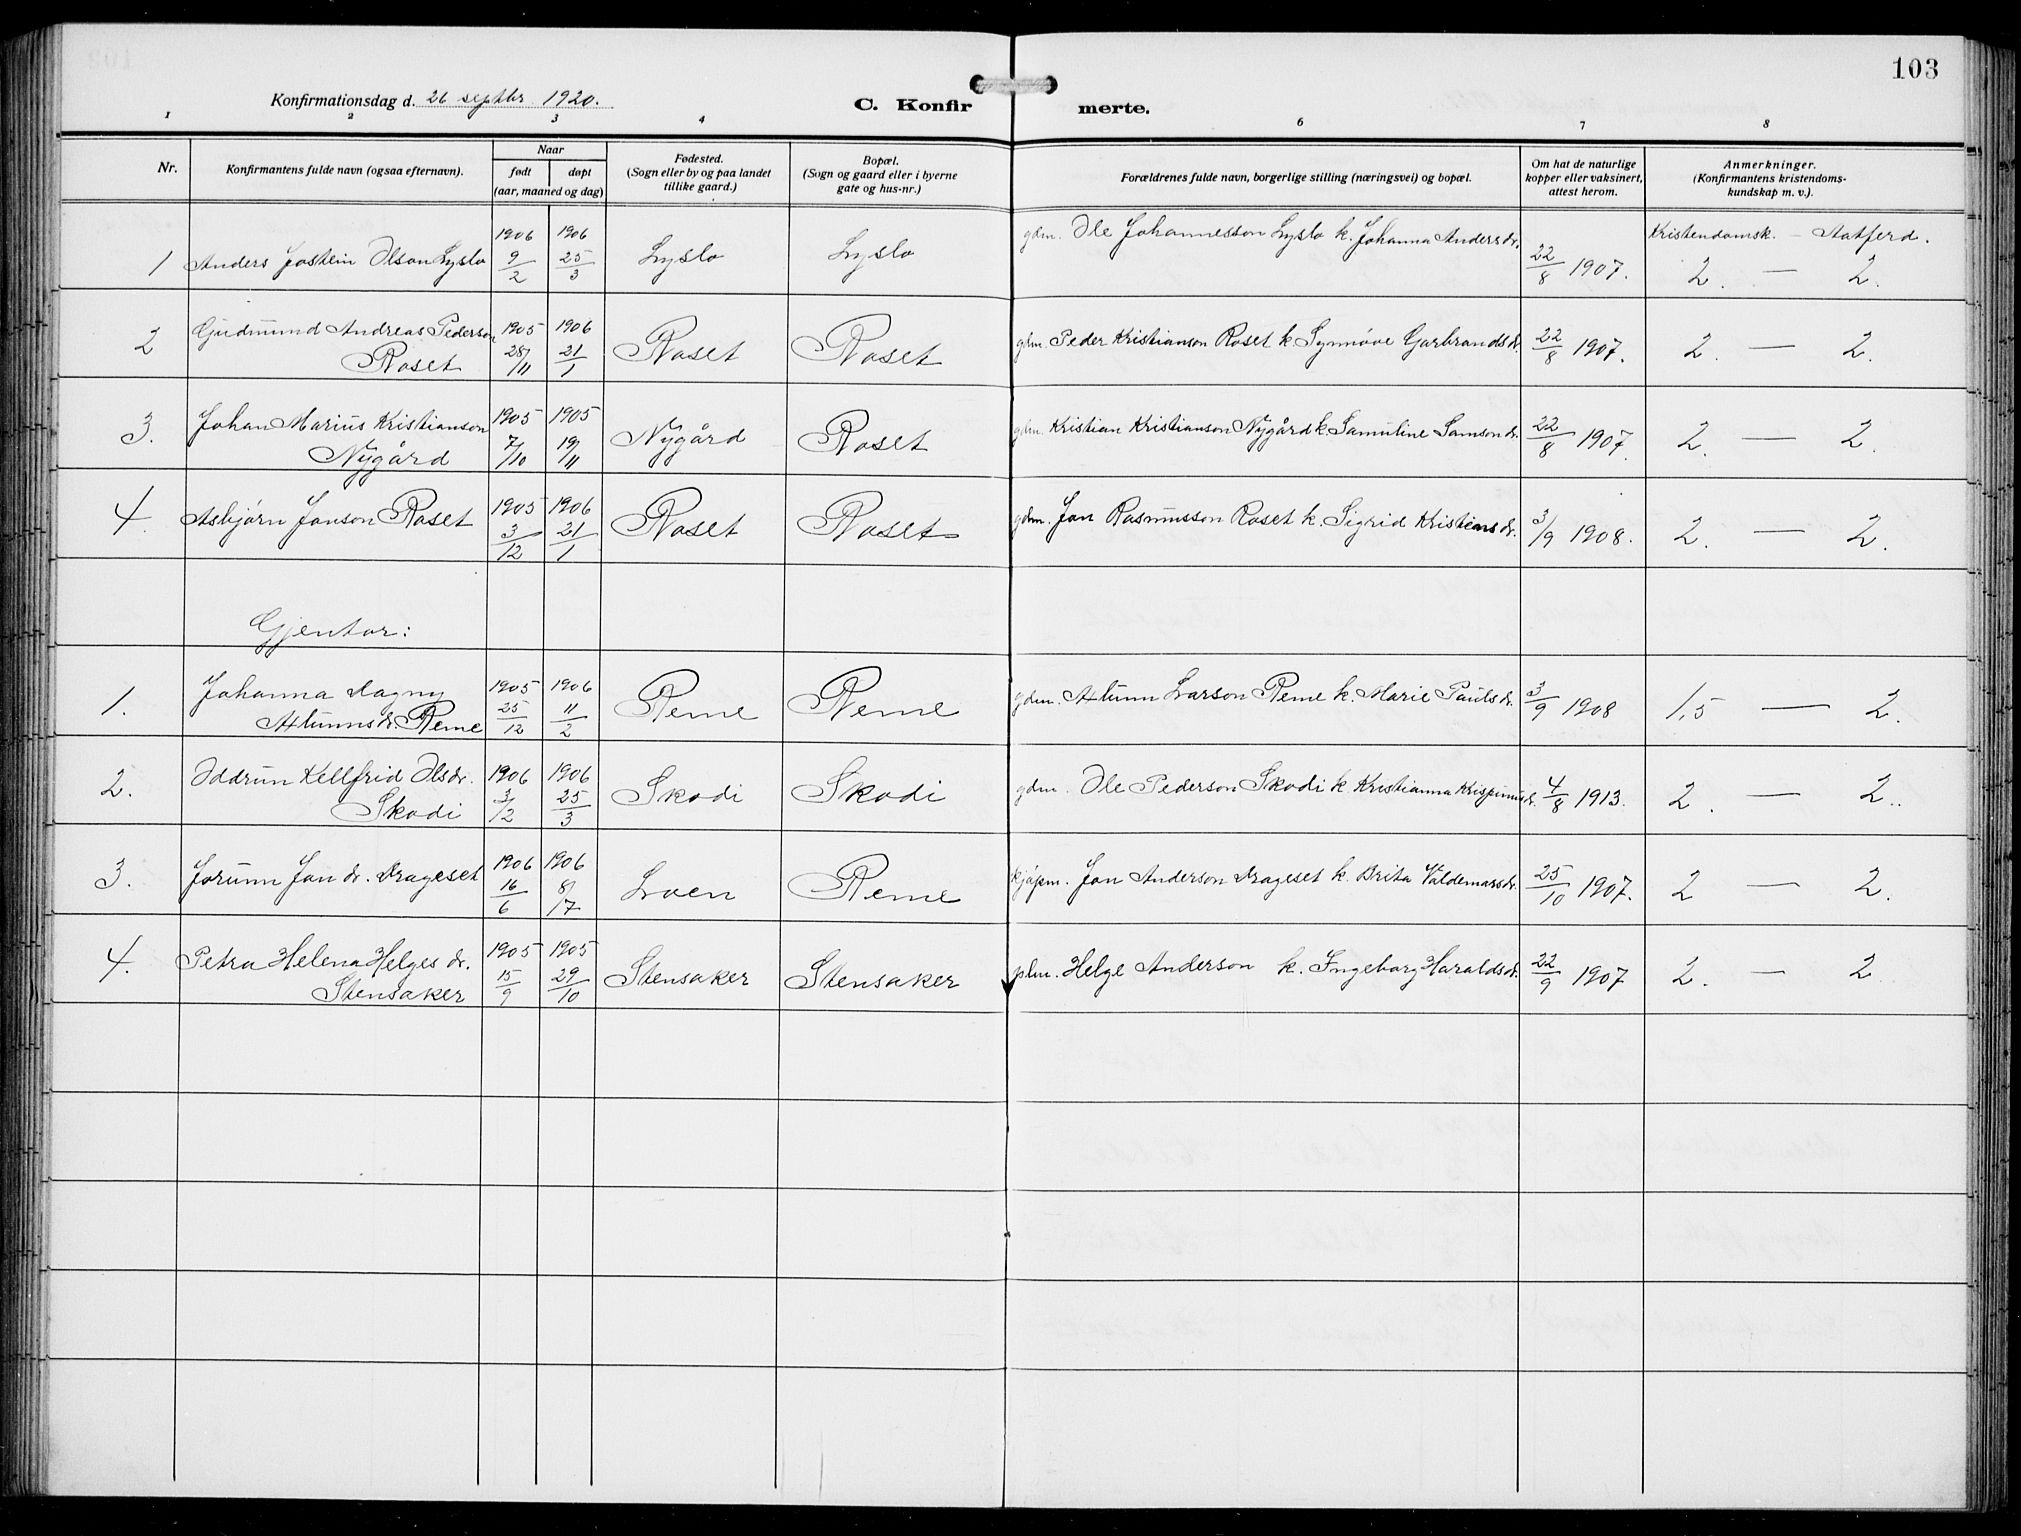 103
Konfirmationsdag d. 26 septbr 1920.
C. Konfirmerte.
1 2 3 4 6 7 8
Nr.
Konfirmantens fulde navn (ogsaa efternavn).
Naar
født døpt
(aar, maaned og dag)
Fødested.
(Sogn eller by og paa landet
tillike gaard.)
Bopæl.
(Sogn og gaard eller i byerne
gate og hus-nr.)
Forældrenes fulde navn, borgerlige stilling (næringsvei) og bopæl.
Om hat de naturlige
kopper eller vaksinert,
attest herom.
Anmerkninger.
(Konfirmantens kristendoms-
kundskap m. v.).
Kristendomsk. — Aatferd.
1 Anders Jostein Olson Lyslo 1906 9/2 1906 25/3 Lyslo Lyslo gdm. Ole Johannesson Lyslo k. Johanna Andersdr. 22/8 1907. 2. — 2.
2 Gudmund Andreas Pederson
Roset 1905 28/11 1906 21/1 Roset Roset gdm. Peder Kristianson Roset k. Synnøve Garbrandsdr. 22/8 1907. 2. — 2.
3. Johan Marius Kristianson
Nygård 1905 7/10 1905 19/11 Nygård Roset gdm. Kristian Kristianson Nygård k. Samuline Samsondr. 22/8 1907. 2. — 2.
4. Asbjørn Janson Roset 1905 3/12 1906 21/1 Roset Roset gdm. Jon Rasmusson Roset k. Sigrid Kristensdr. 3/9 1908. 2. — 2.
Gjentor:
1. Johanna Dagny
Atlunnsdr. Reme 1905 25/12 1906 11/2 Reme Reme gdm. Atlunn Larson Reme k. Marie Paulsdr. 3/9 1908 1,5 — 2.
2. Oddrun Kellfrid Olsdr.
Skodi 1906 3/2 1906 25/3 Skodi Skodi gdm. Ole Pederson Skodi k. Kristianna Krispinusdr. 4/8 1913. 2. — 2..
3. Jorunn Jon dr. Drageset 1906 16/6 1906 8/17 Loen Reme kjøpm. Jon Anderson Drageset k. Brita Valdemarsdr. 25/10 1907. 2 — 2.
4. Petra Helena Helges dr.
Stensaker 1905 15/9 1905 29/10 Stensaker Stensaker plm. Helge Anderson k. Ingeborg Haraldsdr. 22/9 1907 2. — 2